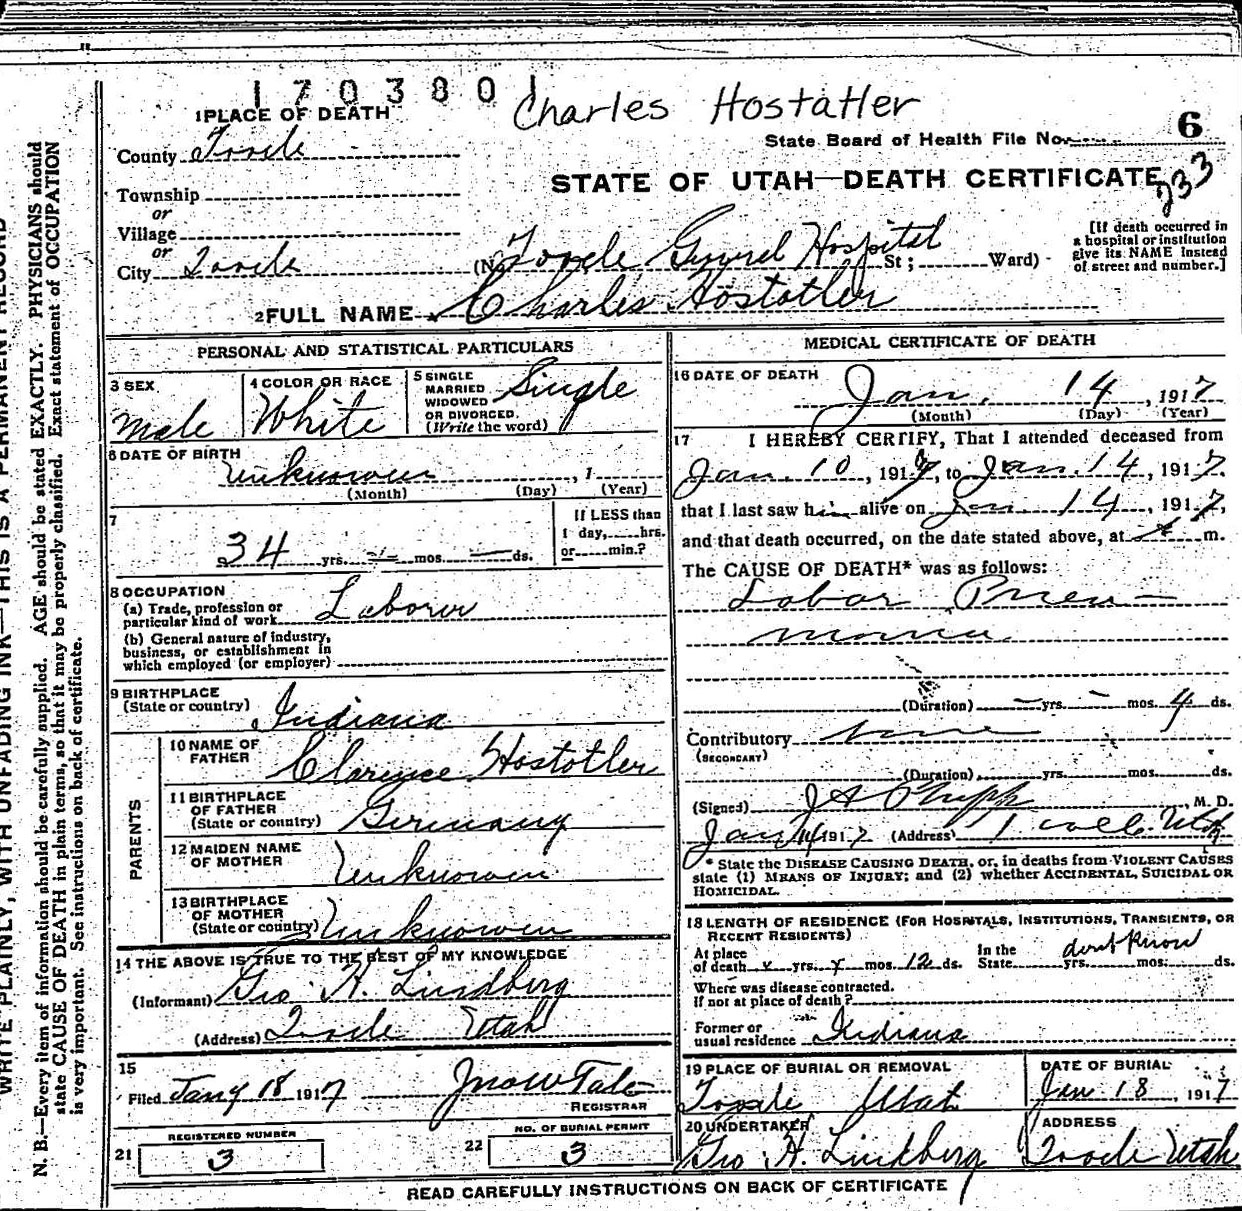 1703801
Charles Hostatler
1 PLACE OF DEATH
State Board of Health File No. 6
County Tooele
233
STATE OF UTAH—DEATH CERTIFICATE
Township
or
Village
or
City Tooele (No. Tooele General Hospital St; Ward)
[If death occurred in
a hospital or institution
give its NAME instead
of street and number.]
2 FULL NAME Charles Hostotler
PERSONAL AND STATISTICAL PARTICULARS
3 SEX
Male
4 COLOR OR RACE
White
5 SINGLE
MARRIED
WIDOWED
OR DIVORCED.
(Write the word)
Single
6 DATE OF BIRTH
Unknown, 1
(Month) (Day) (Year)
7
34 yrs. — mos. — ds.
If LESS than
1 day, hrs.
or min.?
8 OCCUPATION
(a) Trade, profession or
particular kind of work Laborer
(b) General nature of industry,
business, or establishment in
which employed (or employer)
9 BIRTHPLACE
(State or country) Indiana
PARENTS
10 NAME OF
FATHER Clarence Hostotler
11 BIRTHPLACE
OF FATHER
(State or country) Germany
12 MAIDEN NAME
OF MOTHER Unknown
13 BIRTHPLACE
OF MOTHER
(State or country) Unknown
14 THE ABOVE IS TRUE TO THE BEST OF MY KNOWLEDGE
(Informant) Geo. H. Lindberg
(Address) Tooele Utah
15
Filed Jany 18 1917 Jno W Tate
REGISTRAR
REGISTERED NUMBER
21 3
NO. OF BURIAL PERMIT
22 3
MEDICAL CERTIFICATE OF DEATH
16 DATE OF DEATH
Jan. 14, 1917
(Month) (Day) (Year)
17 I HEREBY CERTIFY, That I attended deceased from
Jan. 10, 1917, to Jan. 14, 1917.
that I last saw him alive on Jan. 14, 1917,
and that death occurred, on the date stated above, at m.
The CAUSE OF DEATH* was as follows:
Lobar Pneu-
monia
(Duration) — yrs. — mos. 4 ds.
Contributory none
(SECONDARY)
(Duration) yrs. mos. ds.
(Signed) J A Phipps, M. D.
Jan 14 1917 (Address) Tooele Utah
* State the DISEASE CAUSING DEATH, or, in deaths from VIOLENT CAUSES
state (1) MEANS OF INJURY; and (2) whether ACCIDENTAL, SUICIDAL OR
HOMICIDAL.
18 LENGTH OF RESIDENCE (FOR HOSPITALS, INSTITUTIONS, TRANSIENTS, OR
RECENT RESIDENTS)
At place
of death yrs. mos. 12 ds. In the
State yrs. mos. ds. dont know
Where was disease contracted.
If not at place of death?
Former or
usual residence Indiana
19 PLACE OF BURIAL OR REMOVAL
Tooele Utah
DATE OF BURIAL
Jan 18, 1917
20 UNDERTAKER
Geo. H. Lindberg
ADDRESS
Tooele Utah
READ CAREFULLY INSTRUCTIONS ON BACK OF CERTIFICATE
WRITE PLAINLY, WITH UNFADING INK—THIS IS A PERMANENT RECORD
N. B.—Every item of information should be carefully supplied. AGE should be stated EXACTLY. PHYSICIANS should
state CAUSE OF DEATH in plain terms, so that it may be properly classified. Exact statement of OCCUPATION
is very important. See instructions on back of certificate.